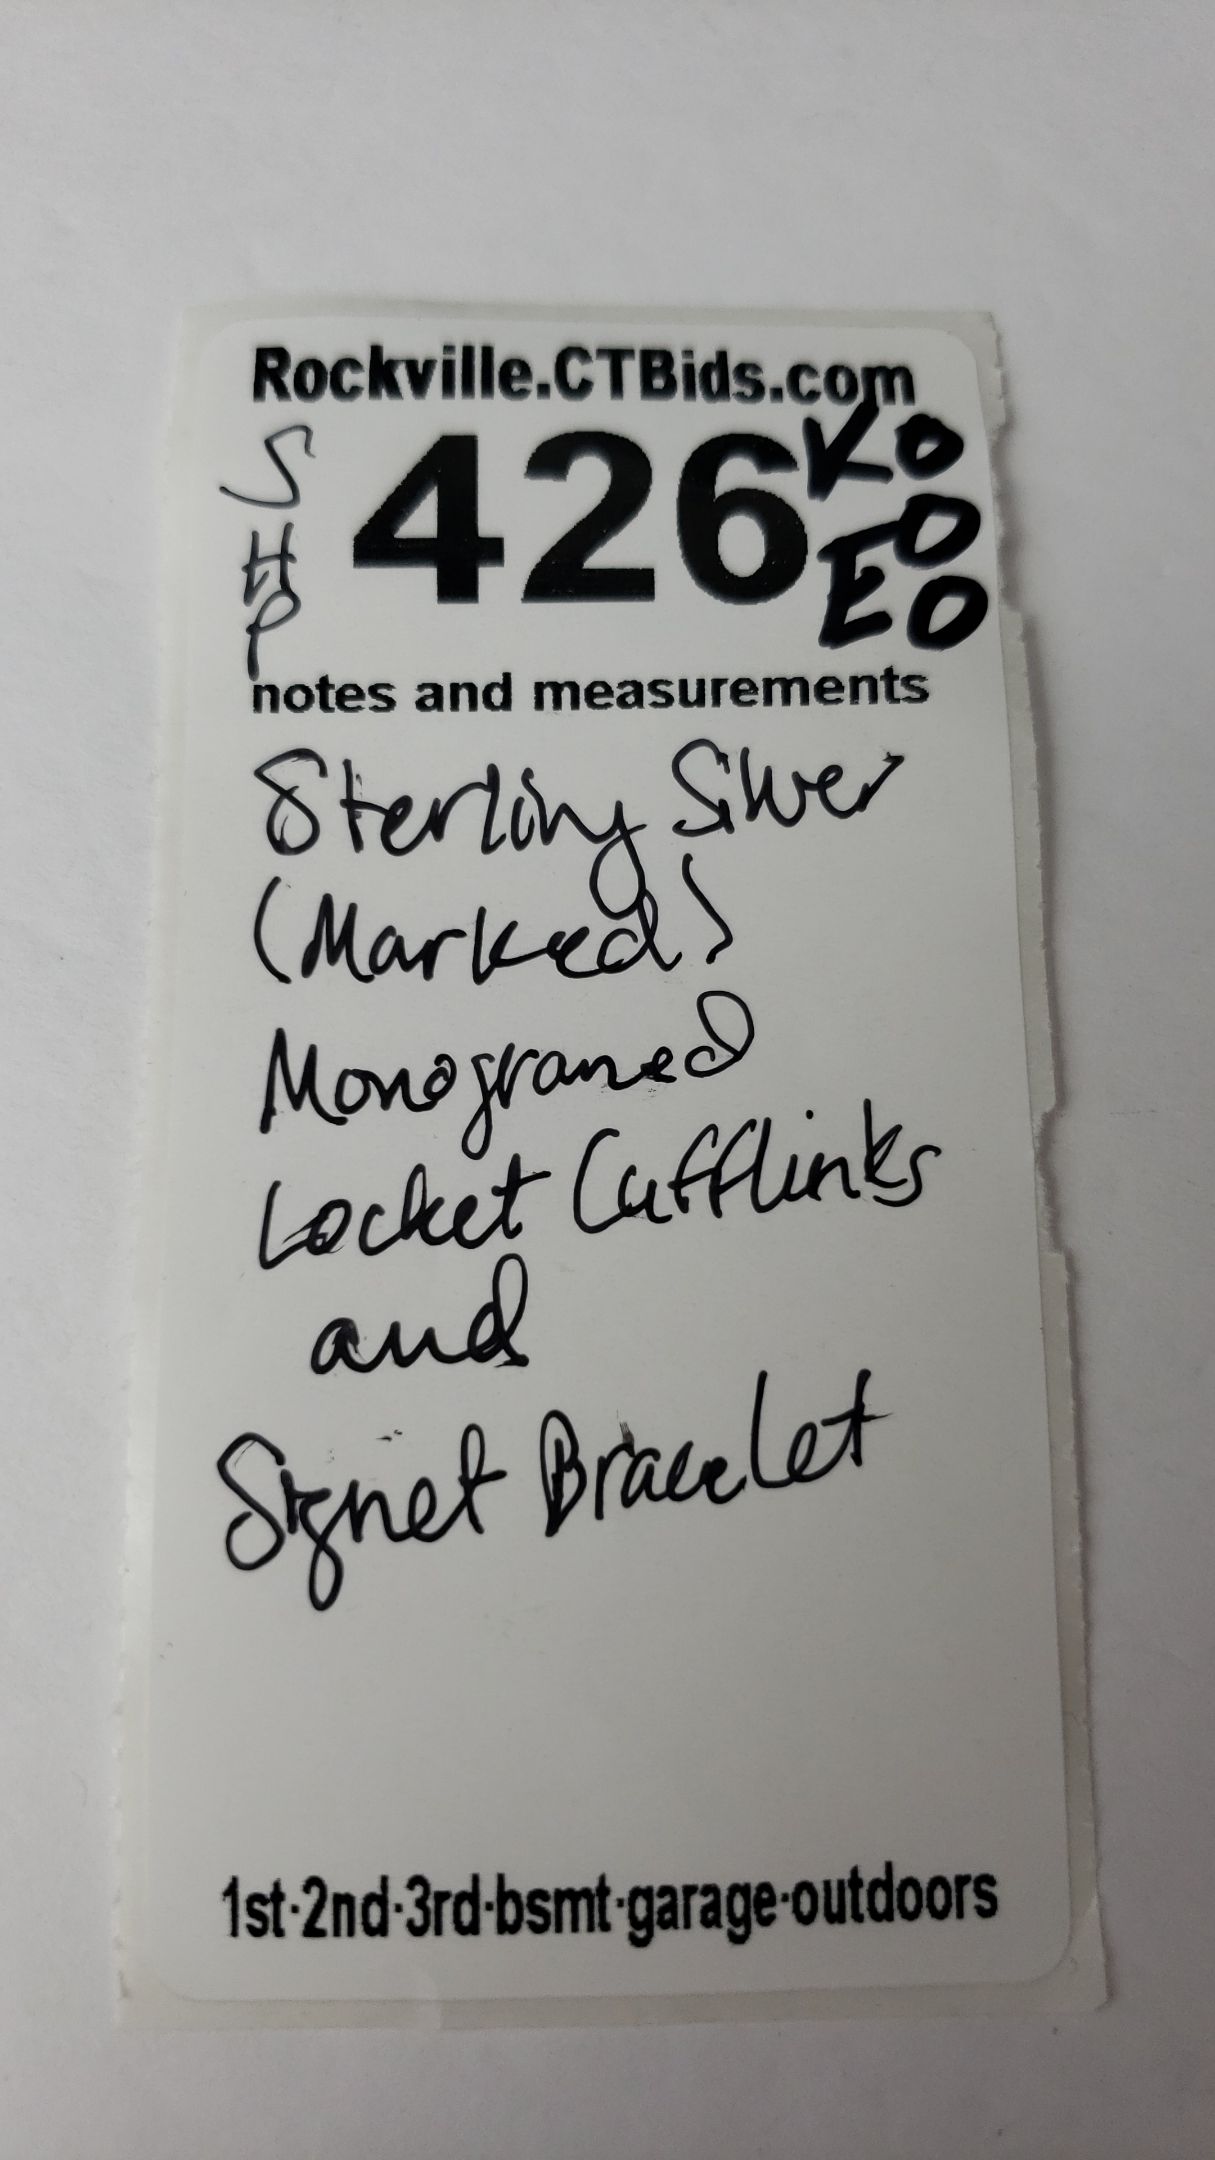 Rockville.CTBids.com
SHP
426
KO
EO
O
notes and measurements
Sterling Silver
(Marked)
Monogramed
Locket Cufflinks
and
Signet Bracelet
1st·2nd·3rd·bsmt·garage·outdoors